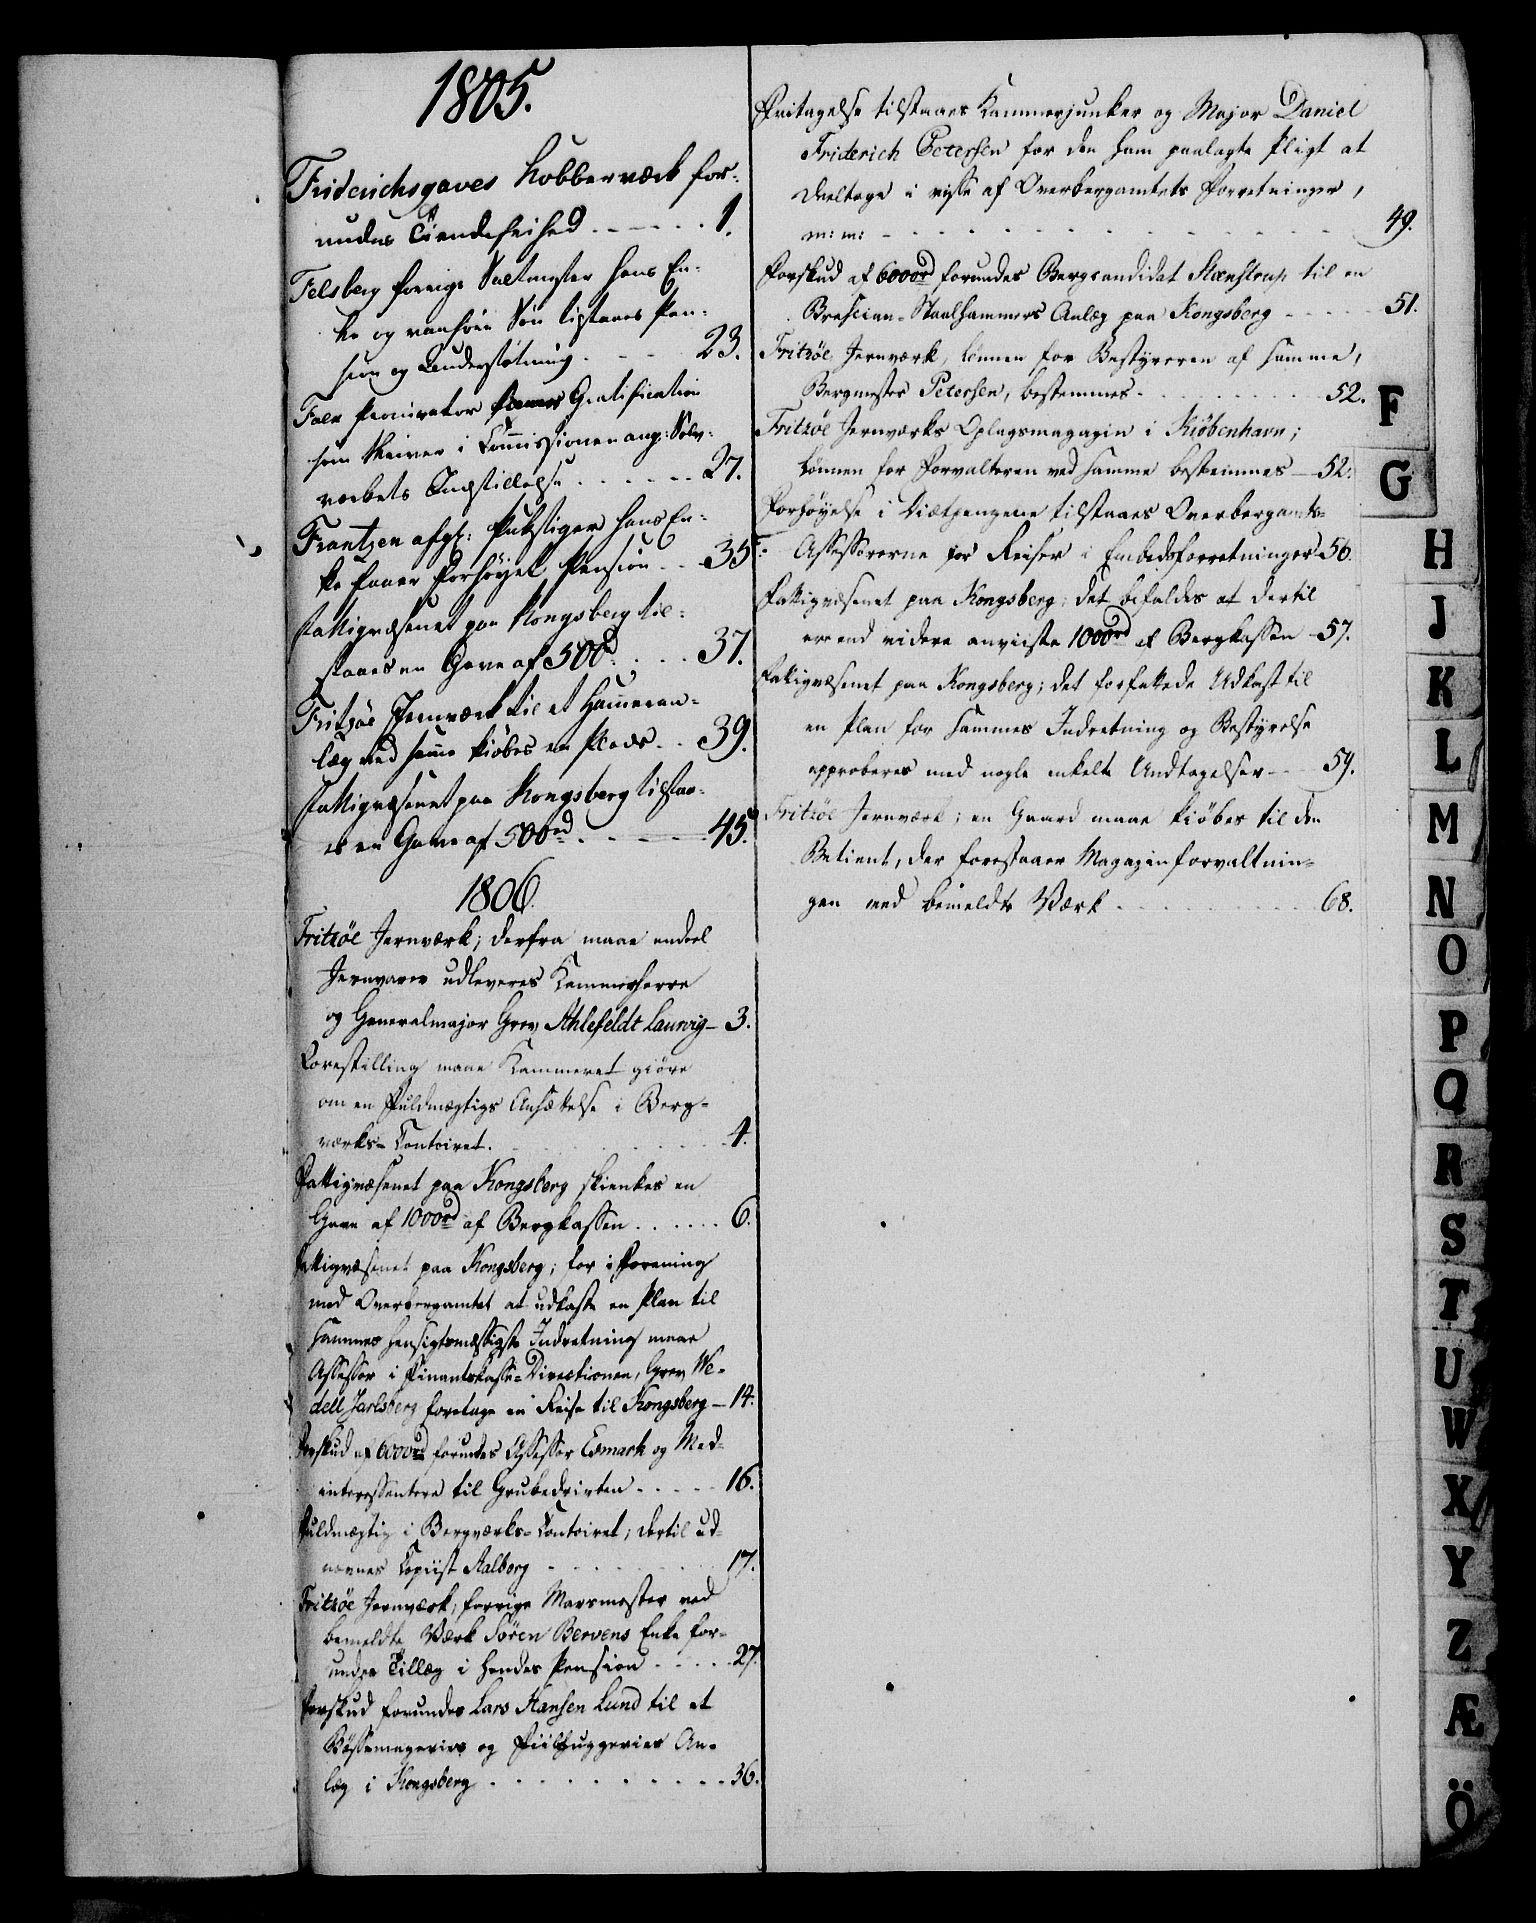 1805.
Friderichsgaves Kobberværk for-
undes Tiendefrihed . . . . . . 1.
Felsberg forrige Saltmester hans En-
ke og vanføre Søn tilstaaes Pen-
sion og Understøtning . . . 23.
Falx Procurator Gratification
som Skriver i Commissionen ang: Sølv-
værkets Indstillelse . . . . . . 27.
Frantzen afg: Pukstiger hans En-
ke faaer forhøyet Pension . . 35.
Fattigvæsenet paa Kongsberg til-
staaes en Gave af 500rd . . . 37.
Fritzöe Jernværk til et Hammeran-
læg ved samme kiøbes en Plads . . 39.
Fattigvæsenet paa Kongsberg tilstaa-
es en Gave af 500rd . . . . . 45.
1806.
Fritzöe Jernværk; derfra maae endeel
Jernvarer udleveres Kammerherre
og Generalmajor Grev Ahlefeldt Laurvig – 3.
Forestilling maae Kammeret giöre
om en Fuldmægtigs Ansættelse i Berg-
værks-Contoiret . . . . . . 4.
Fattigvæsenet paa Kongsberg skienkes en
Gave af 1000rd af Bergkassen . . . . . . 6.
Fattigvæsenet paa Kongsberg; for i Forening
med Overbergamtet at udkaste en Plan til
sammes hensigtsmæssigste Indretning maae
Assessor i Finantskasse-Directionen, Grev We-
dell Jarlsberg foretage en Reise til Kongsberg – 14.
Forskud af 6000rd forundes Assessor Esmark og Med-
interessentere til Grubedrivten . . . . . 16.
Fuldmægtig i Bergværks-Contoiret; dertil ud-
nævnes Copiist Aalborg . . . . . 17.
Fritzöe Jernværk; forrige Marsmester ved
bemeldte Værk Sören Bervens Enke for-
undes Tillæg i hendes Pension . . . . . 27.
Forskud forundes Lars Hansen Lund til et
Bøssemageries og Fiilhuggeries An-
læg i Kongsberg . . . . . . . . . . 36.
Fritagelse tilstaaes Kammerjunker og Major Daniel
Friderich Petersen for den ham paalagte Pligt at
deeltage i visse af Overbergamtets Forretninger,
m: m: . . . . . . . . . . 49.
Forskud af 6000rd forundes Bergcandidat Steenstrup til en
Brescian-Staalhammers Anlæg paa Kongsberg . . . . . 51.
Fritzöe Jernværk, Lönnen for Bestyreren af samme,
Bergmester Petersen, bestemmes . . . . . . . . . 52.
Fritzöe Jernværks Oplagsmagazin i Kiöbenhavn;
Lönnen for Forvalteren ved samme bestemmes – 52.
Forhöyelse i Diætpengene tilstaaes Overbergamts-
Assessorerne for Reiser i Embedsforretninger – 56.
Fattigvæsenet paa Kongsberg; det befaldes at dertil
ere end videre anviiste 1000rd af Bergkassen – 57.
Fattigvæsenet paa Kongsberg; det forfattede Udkast til
en Plan for sammes Indretning og Bestyrelse
approberes med nogle enkelte Undtagelser – 59.
Fritzöe Jernværk; en Gaard maae kiöbes til den
Betient, der forestaaer Magazinforvaltnin-
gen ved bemeldte Værk . . . . . . . . . . 68.
F
G
H
J
K
L
M
N
O
P
Q
R
S
T
U
W
X
Y
Z
Æ
Ö